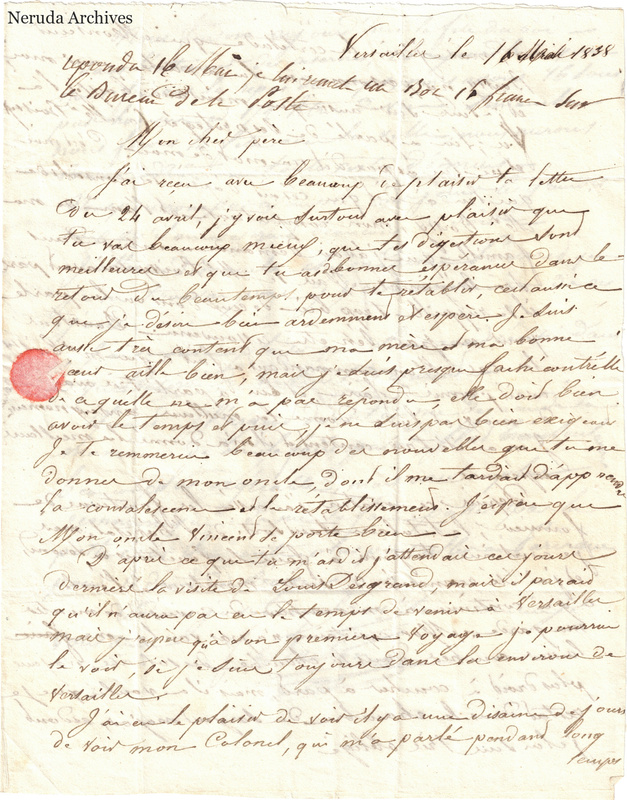 Neruda Archives
Versailles le 16 Mai 1838
repondu 16 Mai je lui remet un Bon 16 francs sur
le Bureau de la Poste
Mon cher pere
J'ai reçu avec beaucoup de plaisir ta lettre
du 24 avril, j'y vois surtout avec plaisir que
tu vas beaucoup mieux, que tes digestions sont
meilleures et que tu as bonnes espérances dans le
retour du beau temps, pour te rétablir, c'est aussi ce
que je désire bien ardemment et espère. Je suis
aussi très content que ma mère et ma bonne
sœur aille bien, mais je suis presque faché contr'elle
de ce qu'elle ne m'a pas répondu, elle doit bien
avoir le temps et puis, je ne suis pas bien exigeant
Je te remmercie beaucoup des nouvelles que tu me
donnes de mon oncle, dont il me tardait d'apprendre
la convalescence et le rétablissement. J'espère que
Mon oncle Vincent se porte bien —
D'après ce que tu m'as dit j'attendais ces jours
derniers la visite de Louis Desgrand, mais il parait
qu'il n'aura pas eu le temps de venir à Versailles
mais j'espère qu'à son premier voyage je pourrai
le voir, si je suis toujours dans les environs de
Versailles.
J'ai eu le plaisir de voir il y a une disaine de jours
de voir mon Colonel, qui m'a parlé pendant long
temps